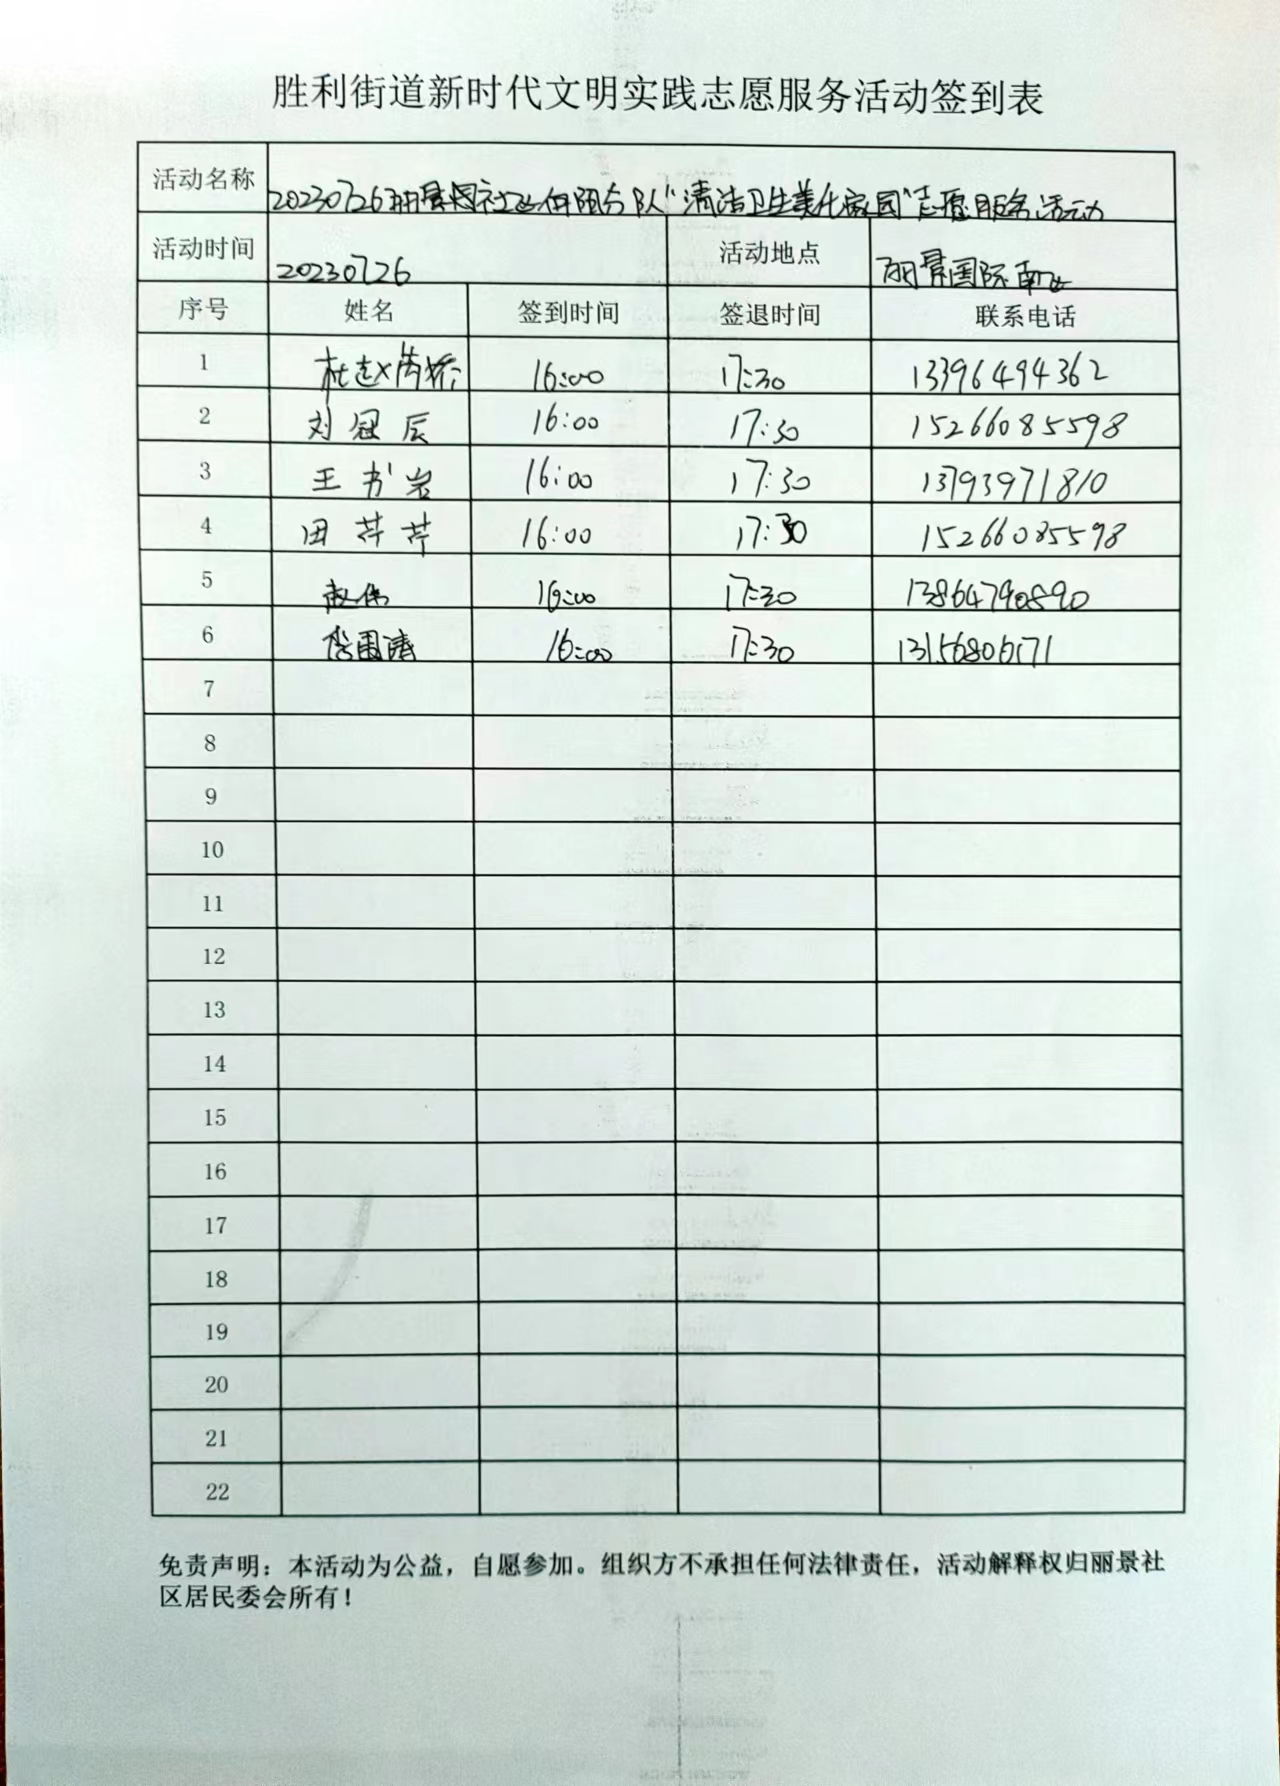 胜利街道新时代文明实践志愿服务活动签到表
活动名称 20230726丽景园社区 分队“清洁卫生美化家园”志愿服务活动
活动时间 20230726 活动地点 丽景国际南区
序号 姓名 签到时间 签退时间 联系电话
1 杜赵 16:00 17:30 13396494362
2 刘冠辰 16:00 17:30 15266085598
3 王书岩 16:00 17:30 13793971810
4 田芹芹 16:00 17:30 15266085598
5 赵伟 16:00 17:30 13864790890
6 16:00 17:30 13156806171
7
8
9
10
11
12
13
14
15
16
17
18
19
20
21
22
免责声明：本活动为公益，自愿参加。组织方不承担任何法律责任，活动解释权归丽景社
区居民委会所有！